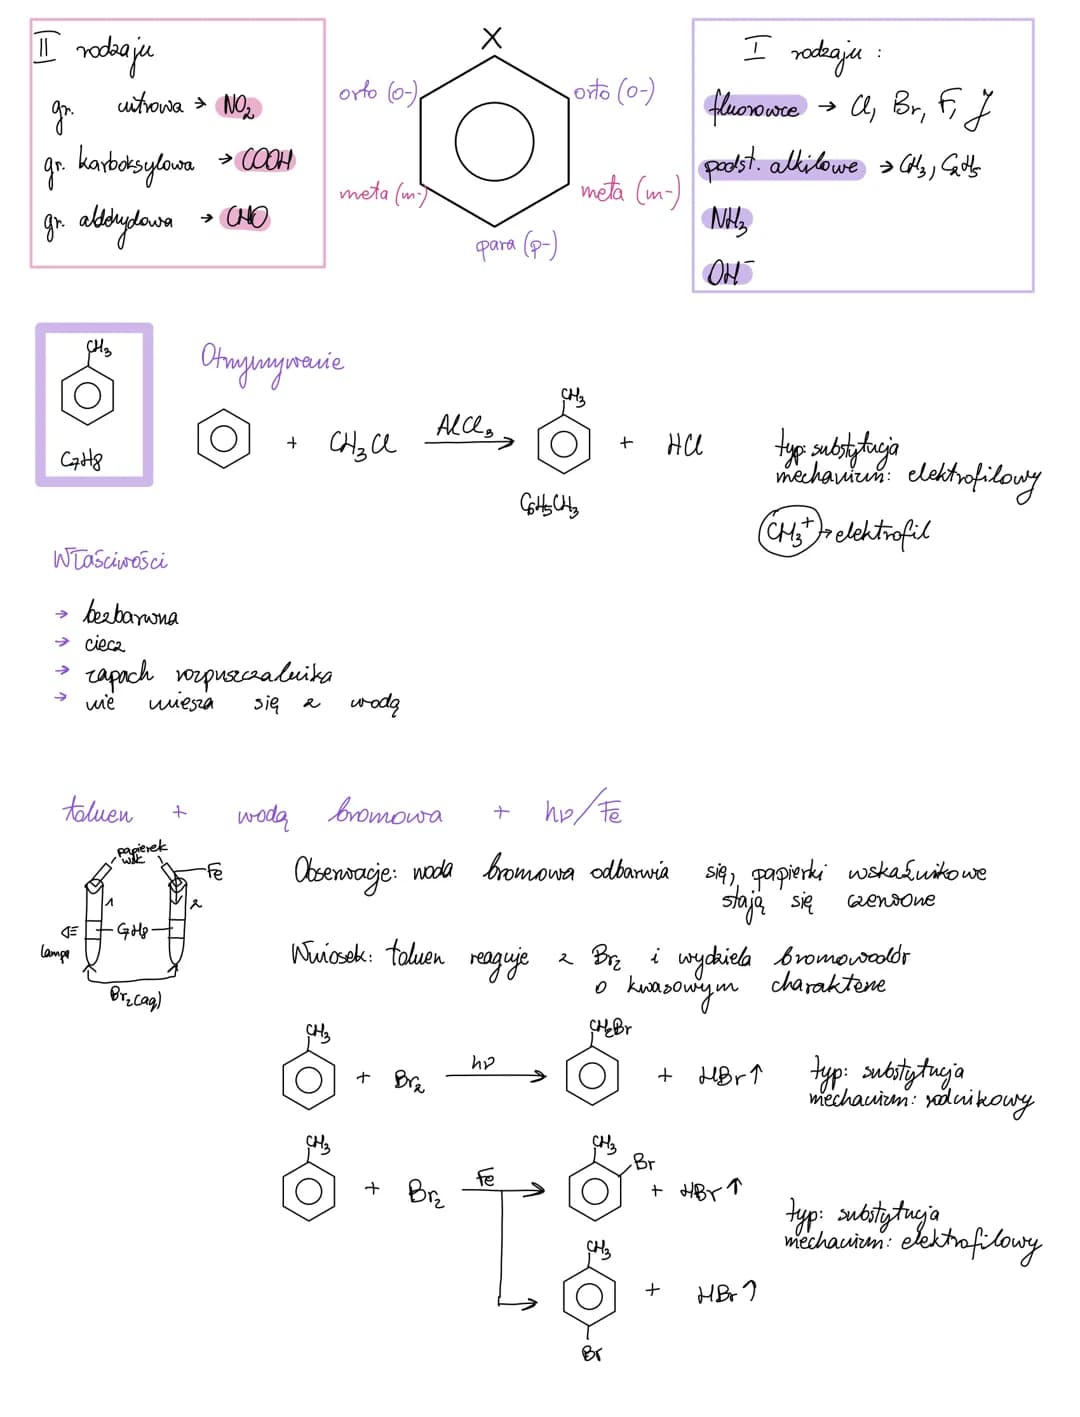 II rodzaju
gr. nitrowa → NO₂
gr. karboksylowa → COOH
gr. aldehydowa → CHO
X
orto (o-)
orto (o-)
meta (m-)
meta (m-)
para (p-)
I rodzaju :
fluorowce → Cl, Br, F, J
podst. alkilowe → CH₃, C₂H₅
NH₃
OH⁻
CH₃
C₇H₈
Otrzymywanie
+ CH₃Cl AlCl₃ → CH₃ + HCl
C₆H₅CH₃
typ: substytucja
mechanizm: elektrofilowy
CH₃⁺ → elektrofil
Właściwości
→ bezbarwna
→ ciecz
→ zapach rozpuszczalnika
→ nie miesza się z wodą
toluen + wodą bromowa + hν/Fe
papierek
wsk
Fe
1
2
C₇H₈
lampa
Br₂(aq)
Obserwacje: woda bromowa odbarwia się, papierki wskaźnikowe
stają się czerwone
Wniosek: toluen reaguje z Br₂ i wydziela bromowodór
o kwasowym charakterze
CH₃ + Br₂ hν → CH₂Br + HBr↑
typ: substytucja
mechanizm: rodnikowy
CH₃ + Br₂ Fe → CH₃ Br + HBr↑
typ: substytucja
mechanizm: elektrofilowy
CH₃ + HBr↑
Br